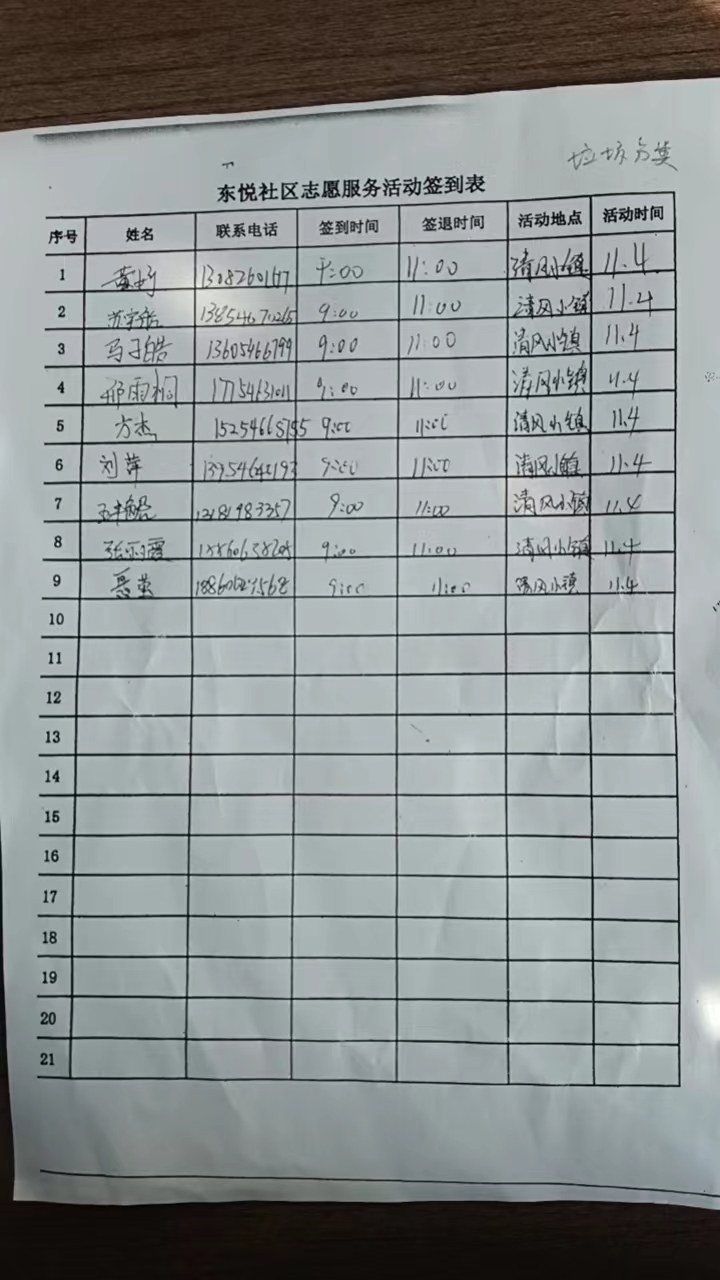 垃圾分类
东悦社区志愿服务活动签到表
序号 姓名 联系电话 签到时间 签退时间 活动地点 活动时间
1 9:00 11:00 清风小镇 11.4
2 9:00 11:00 清风小镇 11.4
3 马子皓 13605466799 9:00 11:00 清风小镇 11.4
4 邢雨桐 9:00 11:00 清风小镇 11.4
5 方杰 9:00 11:00 清风小镇 11.4
6 刘萍 9:00 11:00 清风小镇 11.4
7 9:00 11:00 清风小镇 11.4
8 张丽霞 9:00 11:00 清风小镇 11.4
9 9:00 11:00 清风小镇 11.4
10
11
12
13
14
15
16
17
18
19
20
21